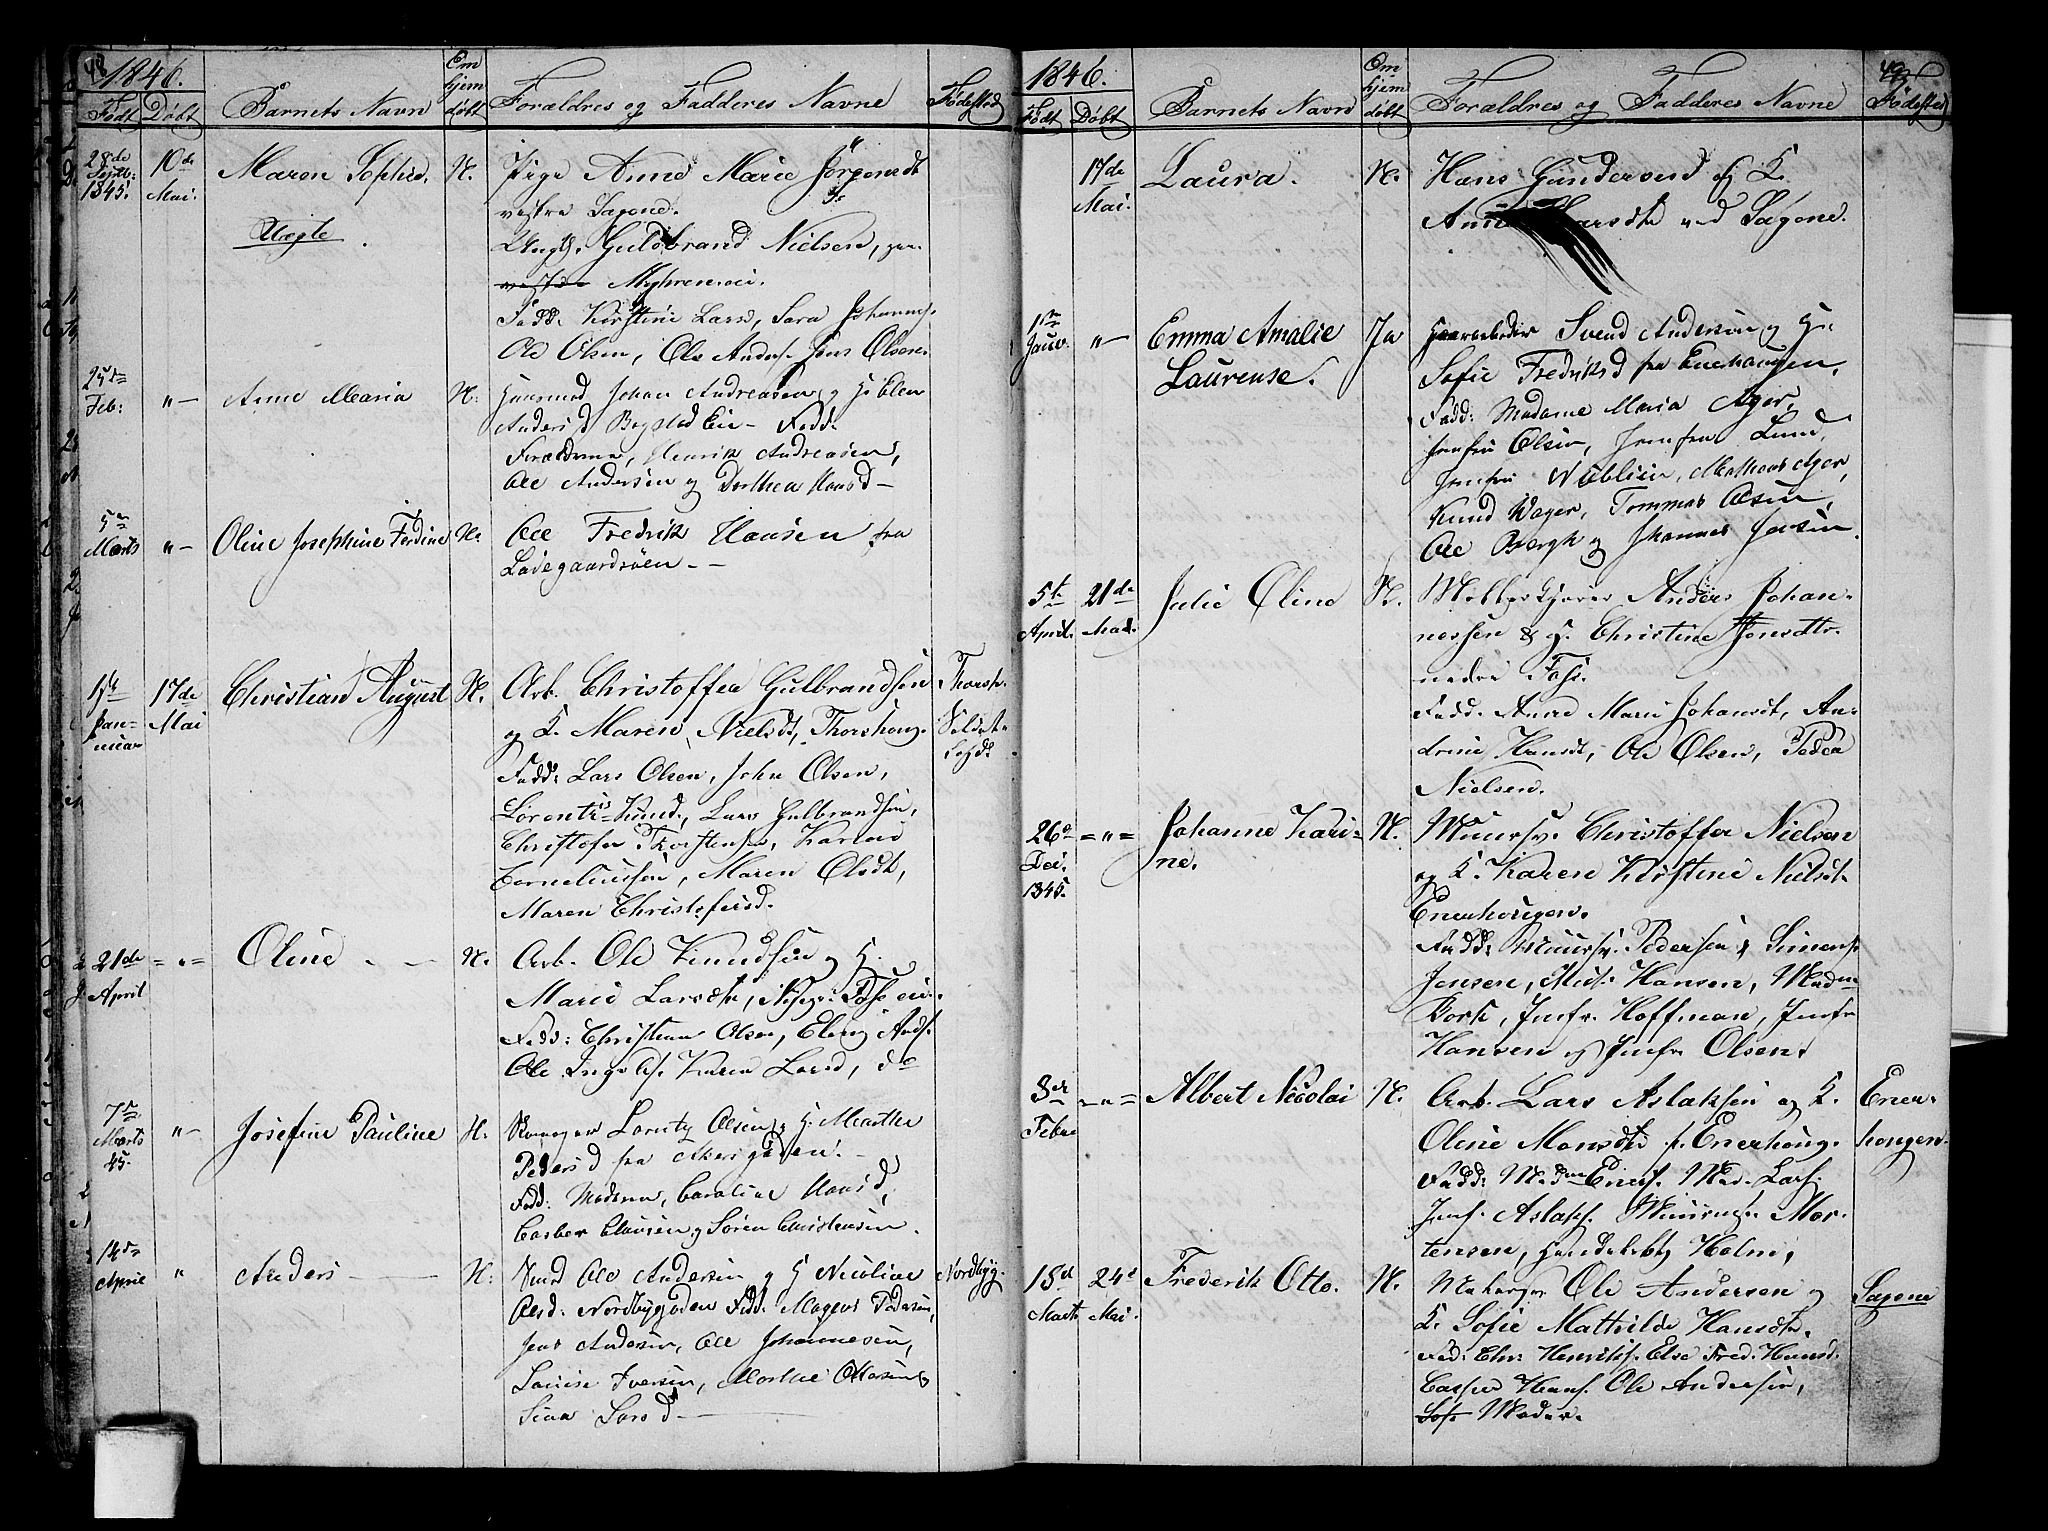 48
1846.
Født Døbt Barnets Navn Om hjem døbt Forældres og Fadderes Navne Fødested
28de Septb: 1845. 10de Mai. Maren Sophie. N. Pige Anne Marie Jørgensdt
vestre Sagene.
Uægte Ungk. Guldbrand Nielsen,
vestre Myhrensei.
Fadd: Kirstine Larsd, Sara Johanns.
Ole Olsen, Ole Anders. Jens Olsen
25de Feb: "– Anne Maria N. Huusmd Johan Andreasen og H. Elen
Andersd Bogstad Eie – Fadd:
Forældrene, Henrik Andreasen,
Ole Andersen og Dorthea Hansd –
5te Marts "– Oline Josephine Ferdine N. Ole Fredrik Hansen fra
Ladegaardsøen – –
1ste Januar 17de Mai Christian August N. Arb. Christoffer Gulbrandsen
og K. Maren Nielsdt, Thorshoug.
Fadd: Lars Olsen, John Olsen,
Lorents Knud., Lars Gulbrandsen,
Christofer Thorstensen, Karen
Corneliussen, Maren Olsdt,
Maren Christofersd.
21de April = " = Oline – – N. Arb. Ole Knudsen og H.
Marie Larsdtr, Foss ei.
Fadd: Christian Olsen, Eling Ands.
Ole Ingebs. Karen Larsd, do
7de Marts 45. "– Josefine Pauline N. Lorentz Olsen og H. Marthe
Pedersd fra Akersgaden. –
Fadd: Moderen, Caroline Hansd,
Casber Clausen og Søren Christensen.
14de April " Anders – N. Ole Andersen og H Nicoline Nordbyg.
Olsd: Nordbygaden Fadd: Magnus Pedersen,
Jens Andersen, Ole Johannesen,
Louise Iversen, Marthe Ottosen,
Larsd –
1846.
Født Døbt Barnets Navn Om hjem døbt Forældres og Fadderes Navne Fødested
17de Mai. Laura. N. Hans Gundersen og K.
Anne Larsdtr ved Sagene.
1ste Januar "– Emma Amalie 7a Svend Andersen og H.
Laurense. Sofie Fredriksd fra Enerhaugen,
Fadd: Madame Maria Ager,
Jomfru Olsen, Jomfru Lund,
Jomfru Nøblien, Mathias Ager,
Knud Wager, Tommas Olsen,
Ole Bergh og Johannes Jensen.
5te April. 21de Mai. Julie Oline N. Møllerkjører Anders Johan-
nessen & H. Christine Jensdtr.
nedre Foss.
Fadd: Anne Marie Johansdt, An-
drine Hansdt, Ole Olsen, Peder
Nielsen.
26de Dec. 1845. = " = Johanne Kari- N. Muursv. Christoffer Nielsen
ne. og K. Karen Kirstine Nielsdt.
Enerhougen.
Fadd: Muursv. Pedersen & Simens.
Jensen, Mads. Hansen, Madm
Bork, Jmfr. Hoffman, Jmfr
Hansen og Jmfr Olsen.
3de Febr. – " = Albert Nicolai N. Arb. Lars Aslaksen og K. Ener-
Oline Monsdtr p. Enerhoug. hougen.
Fadd: Madm Eners. Mad. Lars.
Jmf. Aslaks. Muursv. Mor-
tensen, Handelsb. Holm,
15de Marts 24de Mai. Frederik Otto. N. Ole Andersen og Sagene
K. Sofie Mathilde Hansdtr.
Fad: Chr. Henriks. Else Fred. Hansd.
Casper Hans. Ole Andersen,
Moder.